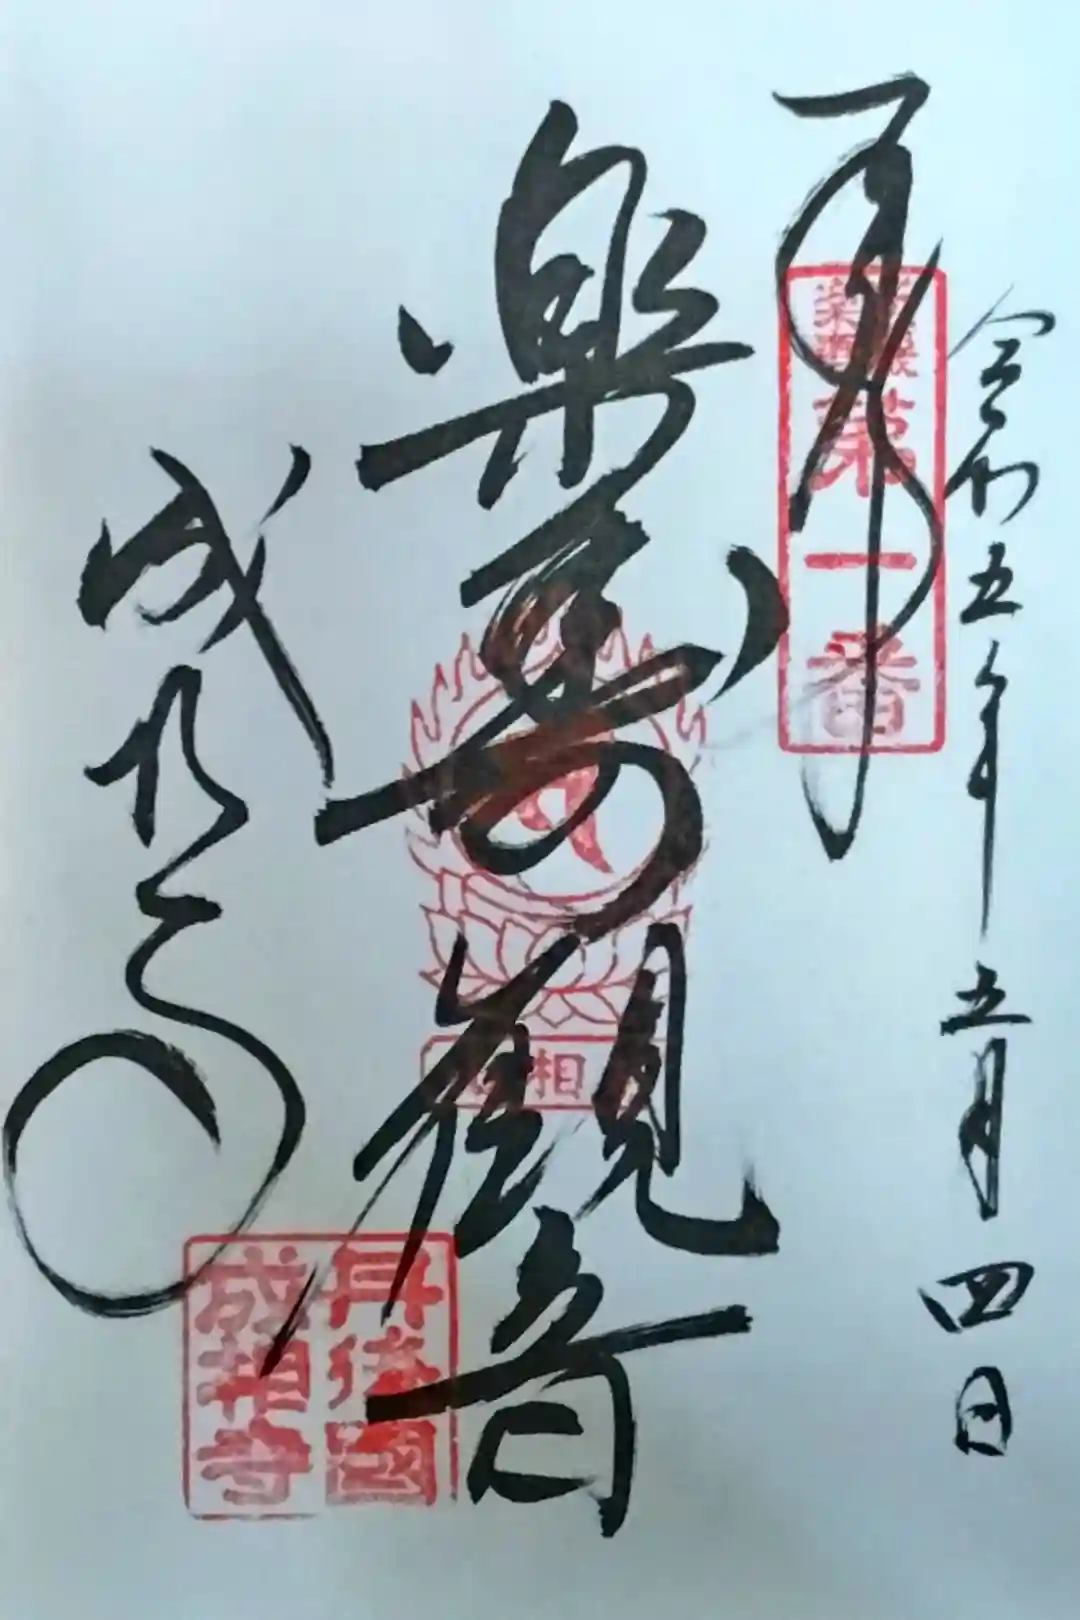 令和五年五月四日
奉拝
第一番
楽壽観音
相
成相寺
丹後國
成相寺